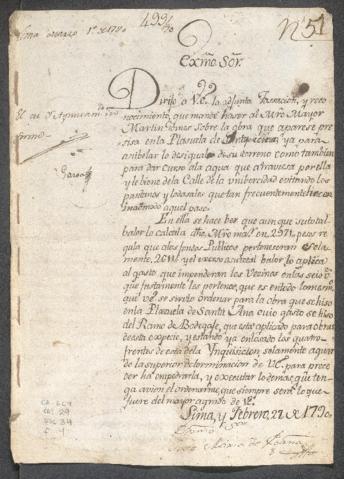 Lima Marzo 1º de 1790
N 51
Exmo. Sor.
Dirijo a V.E. la adjunta Tasacion, y reco
nocimiento, que mandé haser al Mro Mayor
Martin Gomes sobre la obra que aparese pre
sisa en la Plasuela de la Ynquisicion, ya para
anibelar lo desigual de su terreno como tambien
para dar curso ala agua que atraviesa por ella
y le biene de la Calle de la Unibercidad evitando los
pantanos y lodasales que tan frequentemente hacen
incomodo aquel paso.
En ella se hace ber que aunque su total
balor lo calcula dho Mro mar. en 2971. pesos re
gula que alos fondos Publicos pertenoseran solo
mente, y el exceso al total balor lo aplica
al gasto, que impenderan los Vecinos en las seis vs.
que justamente les pertenece, que es entodo lo mismo
que Ve. se sirvio ordenar para la obra que se hiso
en la Plazuela de Santa Ana cuio gasto se hiso
del Ramo de Bodegaje, que está aplicado para obras
de esta especie, y estando ya enlosado las quatro
frentes de esta dela Ynquisicion solamente aguar
do la superior determinacion de V.E. para proce
der ha empedrarla, y executar lo demas que ten
ga a vien el ordenarme, que siempre será lo que
fuere del mayor agrado de VE.
Lima, y Febrero, 22 de 1790.
Exmo. Sor.